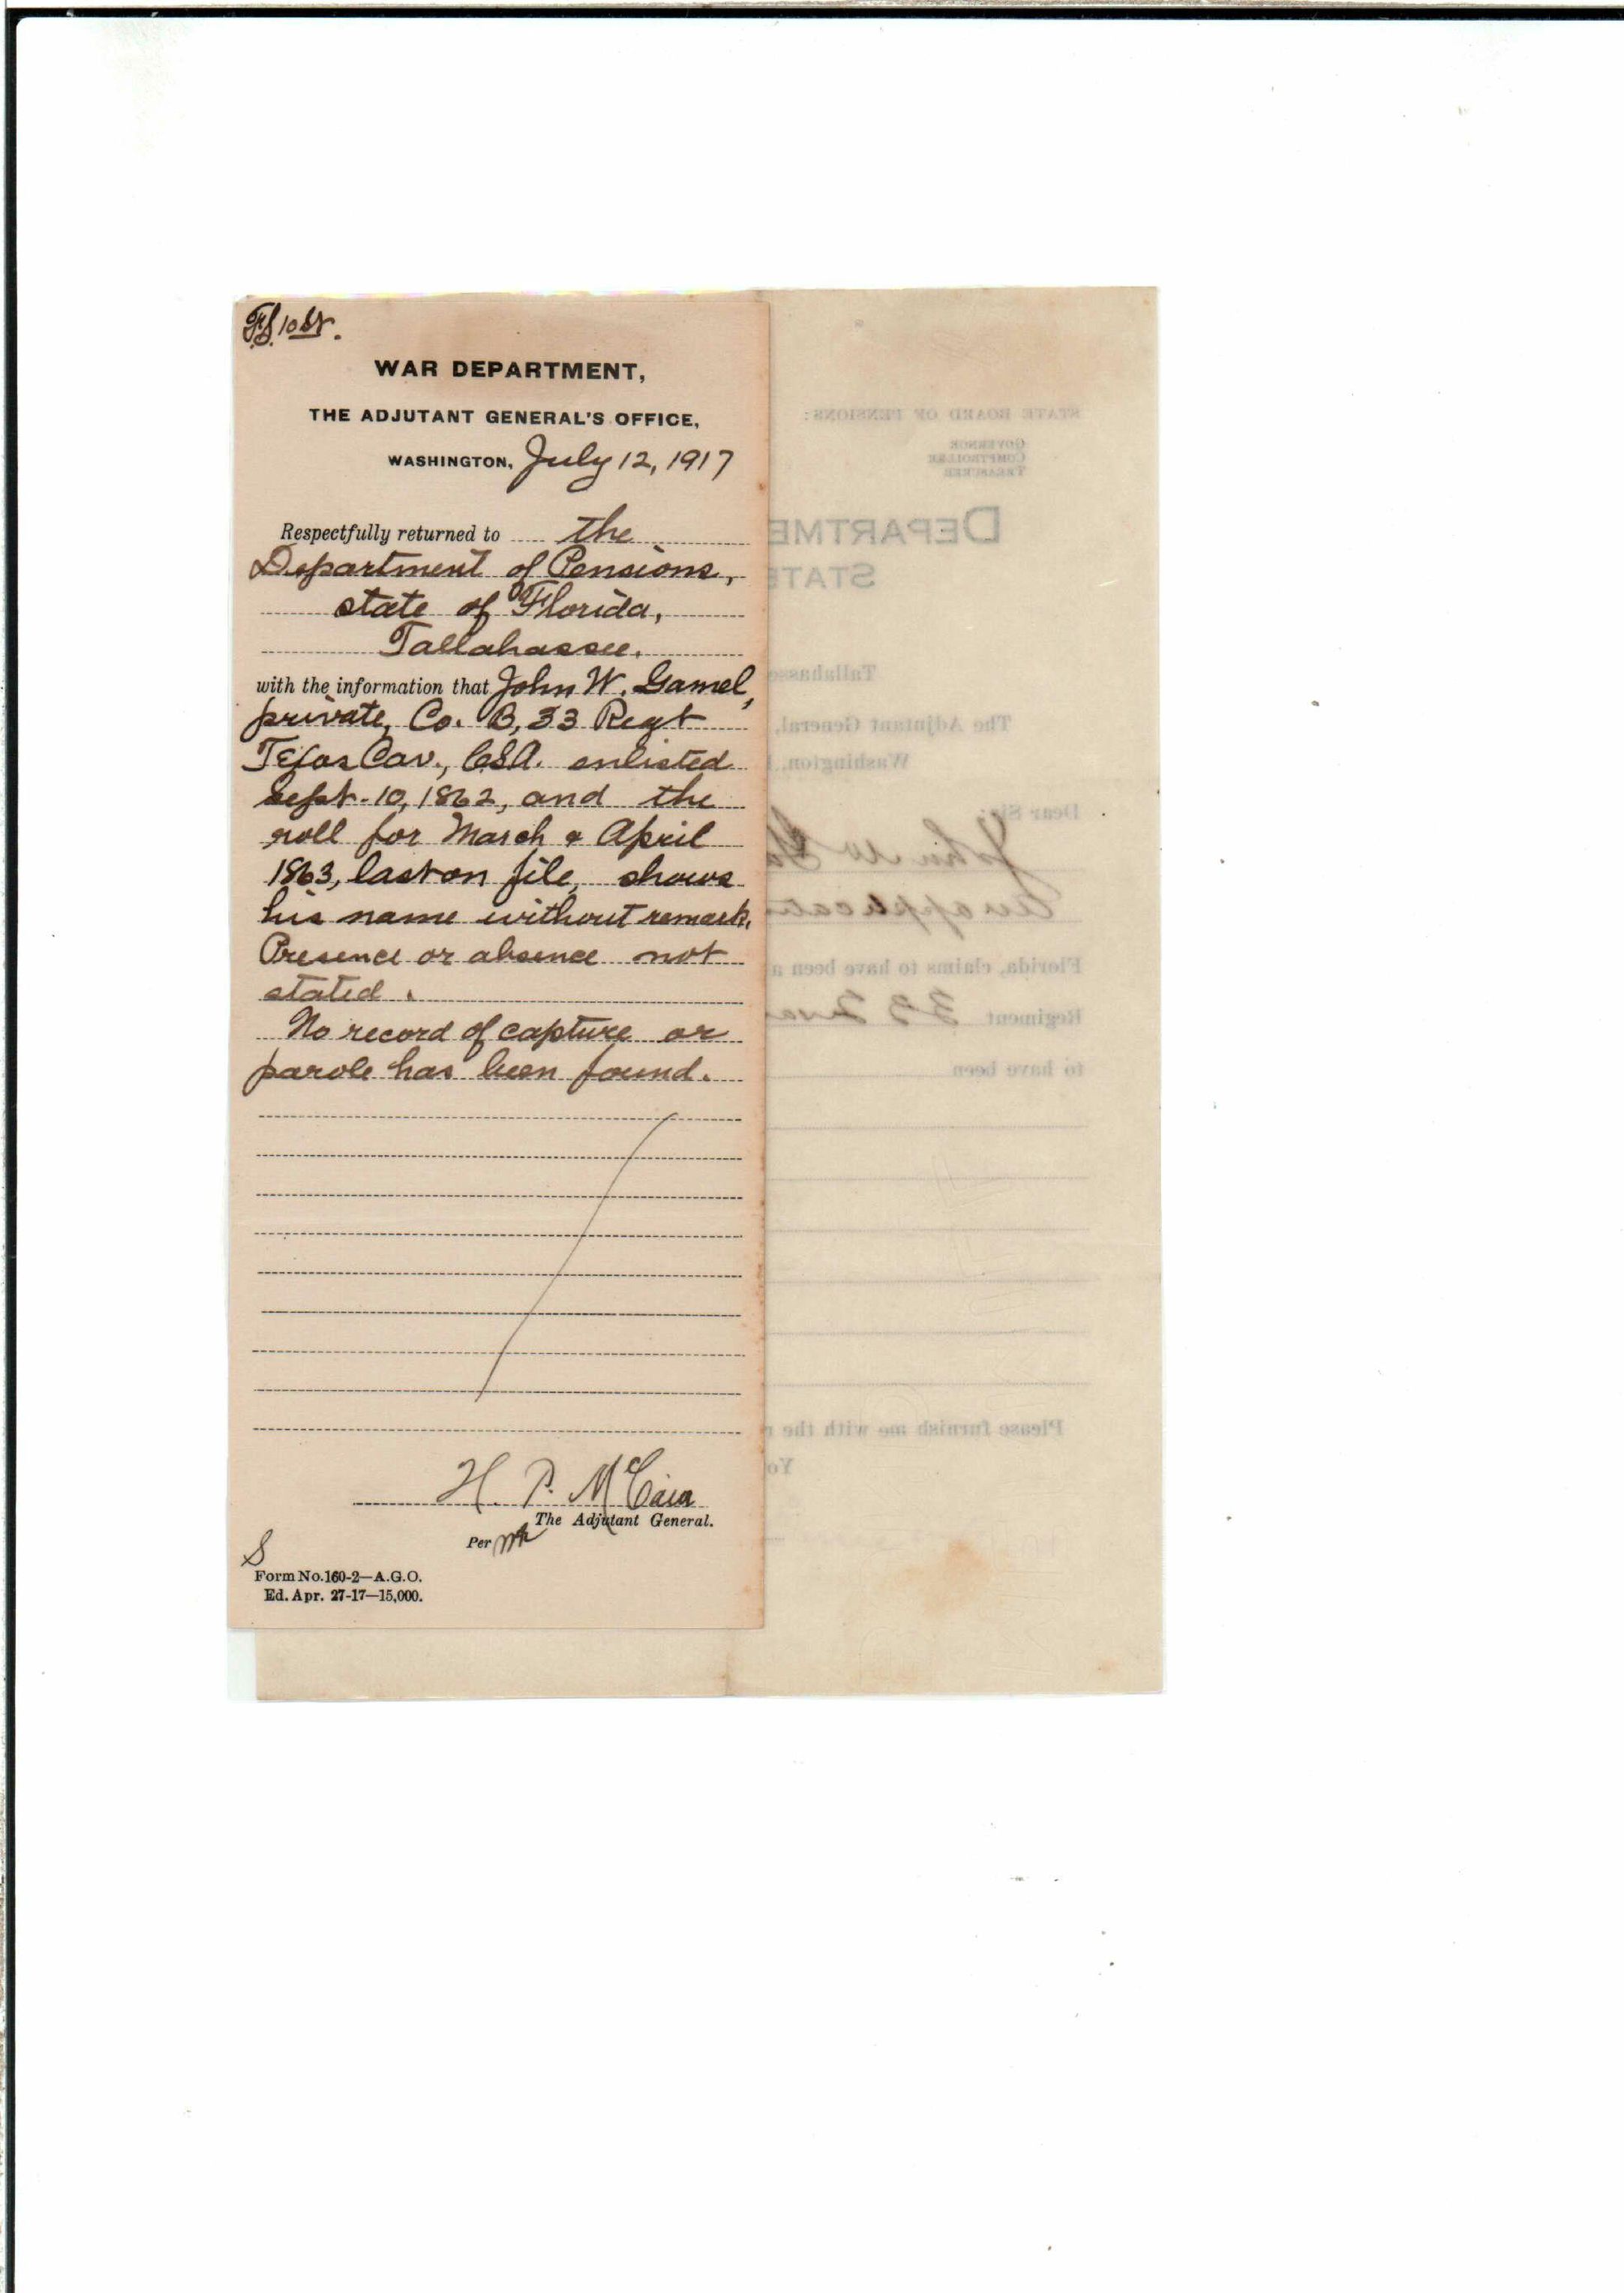 WAR DEPARTMENT,
THE ADJUTANT GENERAL'S OFFICE,
WASHINGTON, July 12, 1917
Respectfully returned to the
Department of Pensions,
state of Florida,
Tallahassee.
with the information that John W. Gamel,
private, Co. B, 33 Regt
Texas Cav., CSA. enlisted
Sept. 10, 1862, and the
roll for March & April
1863, last on file, shows
his name without remark.
Presence or absence not
stated.
No record of capture or
parole has been found.
H. P. McCain
The Adjutant General.
Per
S
Form No. 160-2—A.G.O.
Ed. Apr. 27-17—15,000.
STATE BOARD OF PENSIONS:
GOVERNOR
COMPTROLLER
TREASURER
DEPARTME
STATE
Tallahasse
The Adjutant General,
Washington,
Dear Sir:
John W Ga
An applicati
Florida, claims to have been a
Regiment 33
to have been
Please furnish me with the r
Yo